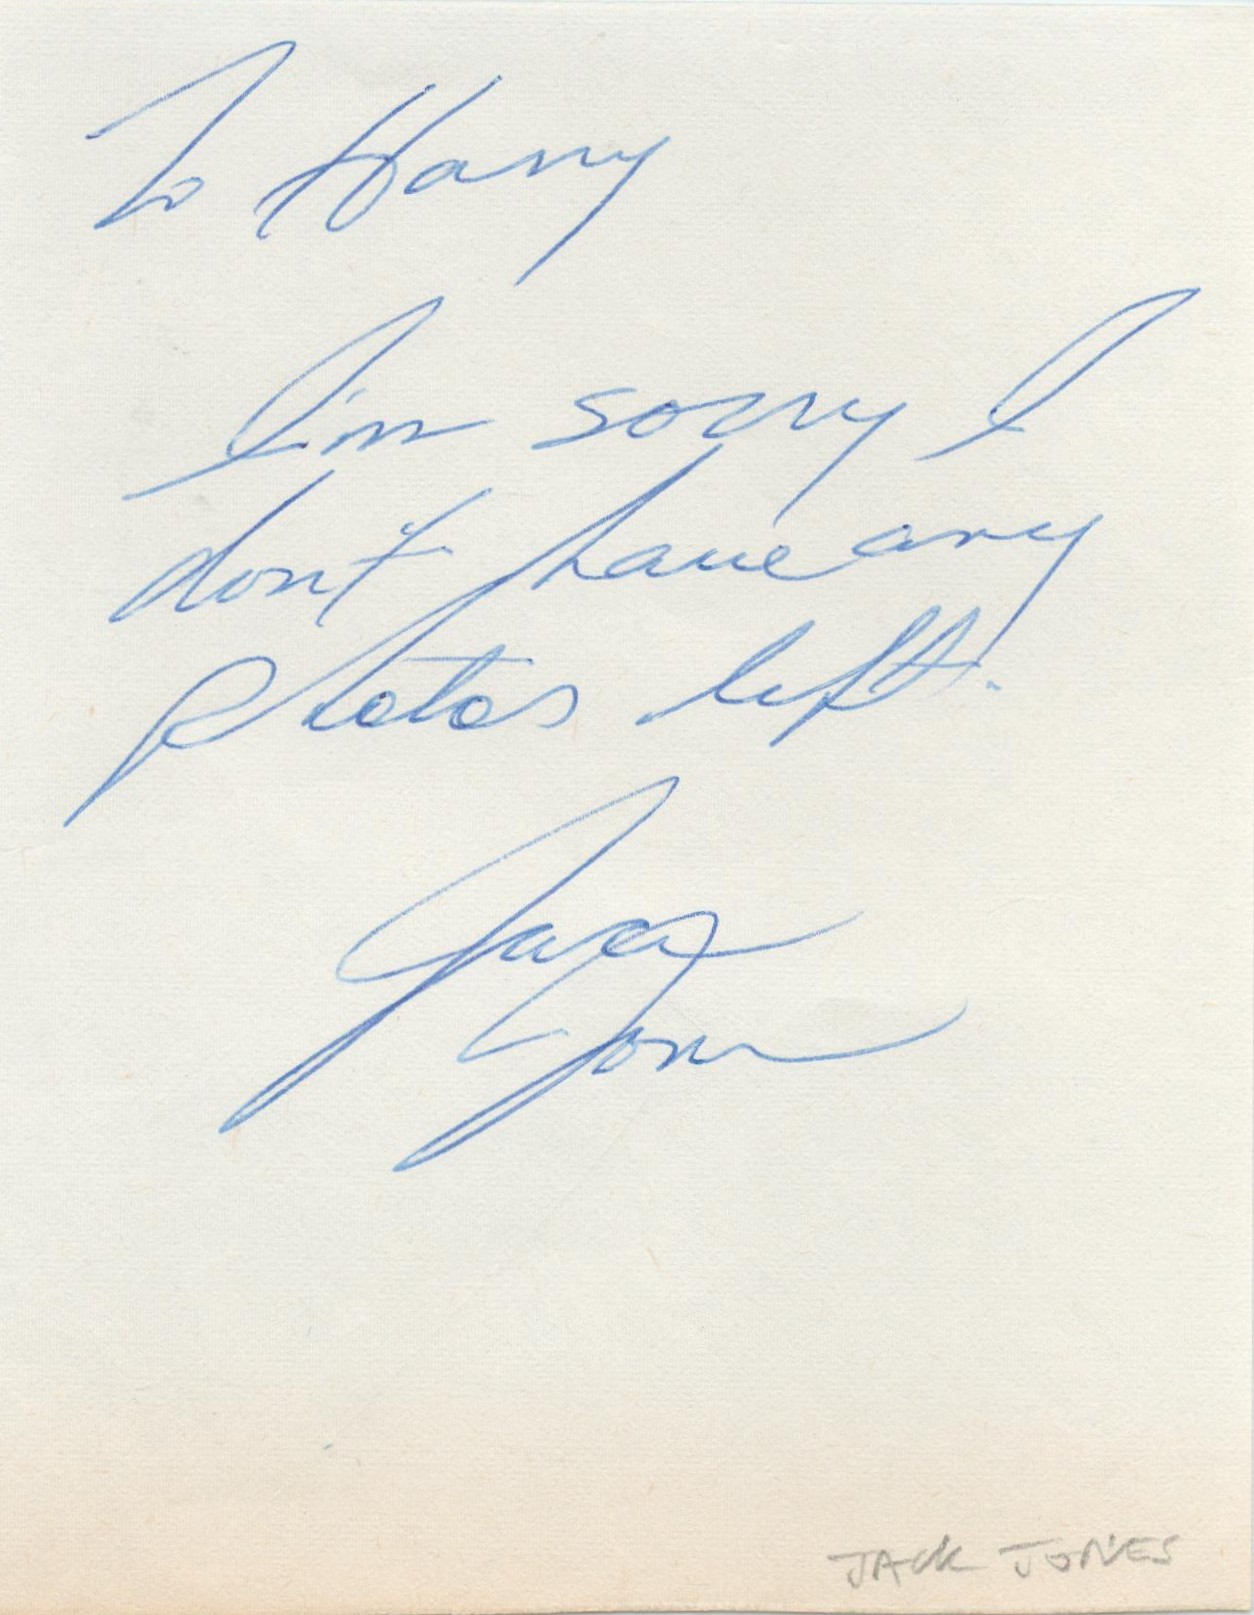 To Harry
I'm sorry I
dont have any
photos left.
Jack
Jones
JACK JONES